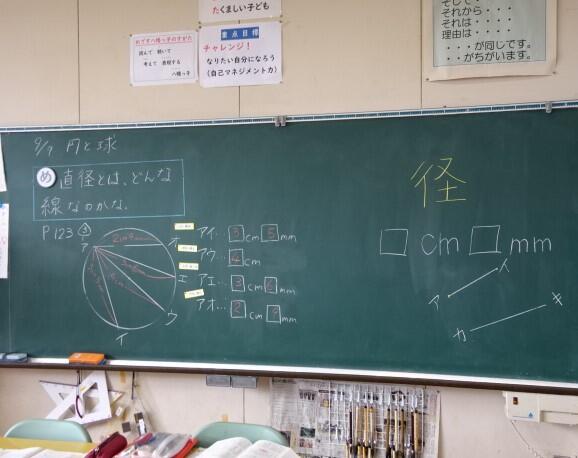 たくましい子ども
めざす八幡っ子のすがた
読んで 聴いて
考えて 表現する
八幡っ子
重点目標
チャレンジ！
なりたい自分になろう
（自己マネジメント力）
そして・・・・
それから・・・・
それは・・・・
理由は・・・・
・・・が同じです。
・・がちがいます。
9/7 円と球
め 直径とは、どんな
線なのかな。
P123 3
ア
オ
エ
ウ
イ
アイ…3cm5mm
アウ…4cm
アエ…3cm6mm
アオ…2cm9mm
径
□cm□mm
ア
イ
カ
キ